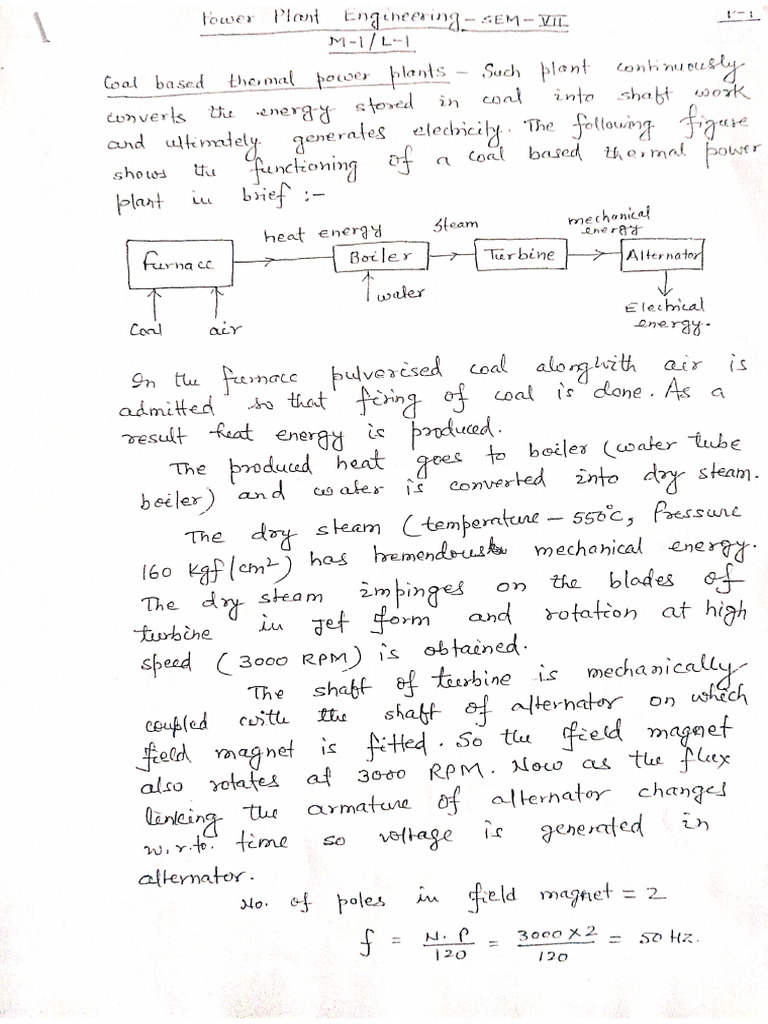 Power Plant Engineering - SEM - VII
P-1
M-1/L-1
Coal based thermal power plants - Such plant continuously
converts the energy stored in coal into shaft work
and ultimately generates electricity. The following figure
shows the functioning of a coal based thermal power
plant in brief :-
heat energy steam mechanical energy
Furnace Boiler Turbine Alternator
Coal air water Electrical energy.
In the furnace pulverised coal alongwith air is
admitted so that firing of coal is done. As a
result heat energy is produced.
The produced heat goes to boiler (water tube
boiler) and water is converted into dry steam.
The dry steam (temperature - 550°C, Pressure
160 kgf/cm²) has tremendous mechanical energy.
The dry steam impinges on the blades of
turbine in Jet form and rotation at high
speed (3000 RPM) is obtained.
The shaft of turbine is mechanically
coupled with the shaft of alternator on which
field magnet is fitted. So the field magnet
also rotates at 3000 RPM. Now as the flux
linking the armature of alternator changes
w.r.to. time so voltage is generated in
alternator.
No. of poles in field magnet = 2
f = N.P/120 = 3000 X 2/120 = 50 Hz.